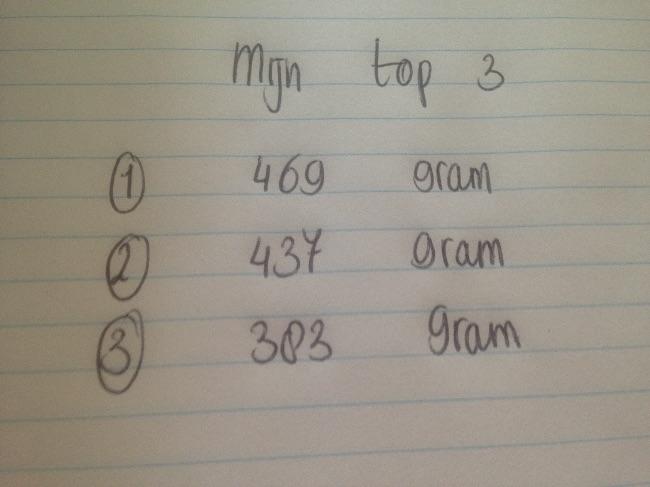 Mijn top 3
1 469 gram
2 437 gram
3 383 gram